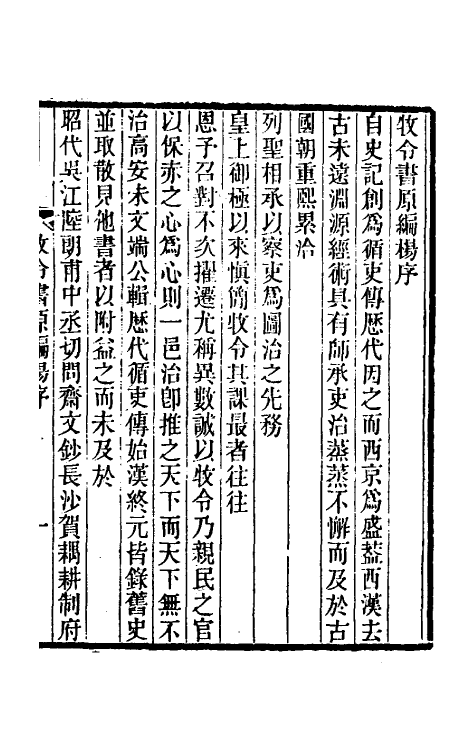 牧令書原編楊序
自史記創為循吏傳歷代因之而西京為盛葢西漢去
古未遠淵源經術具有師承吏治蒸蒸不懈而及於古
國朝重熙累洽
列聖相承以察吏為圖治之先務
皇上御極以來慎簡牧令其課最者往往
恩予召對不次擢遷尤稱異數誠以牧令乃親民之官
以保赤之心為心則一邑治卽推之天下而天下無不
治高安朱文端公輯歷代循吏傳始漢終元皆錄舊史
並取散見他書者以附益之而未及於
昭代吳江陸朗甫中丞切問齋文鈔長沙賀耦耕制府
牧令書原編楊序
一